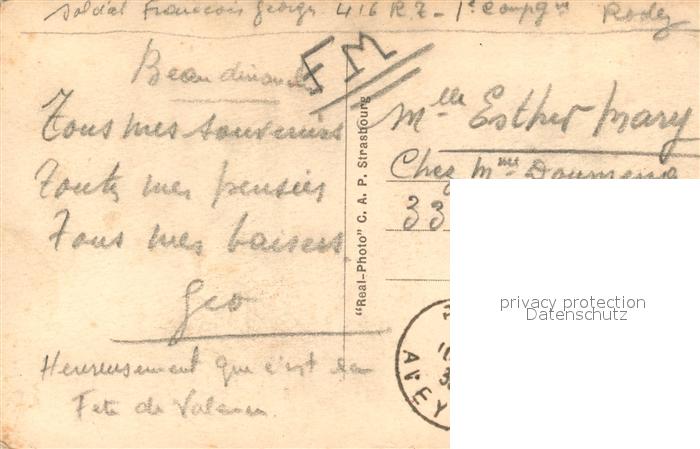 Soldat Francois Georges 416 R.I - 1e Compgie Rodez
FM
Beau dimanche
Tous mes souvenirs
Toutes mes pensées
Tous mes baisers.
Geo
Heureusement que c'est la
Fete de Valence
"Real-Photo" C. A. P. Strasbourg
Mlle Esther Mary
Chez Mme Doumeng
33
AVEY
privacy protection
Datenschutz